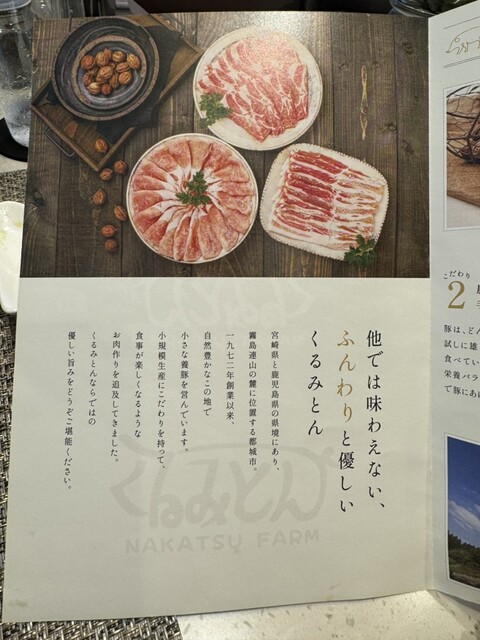 他では味わえない、
ふんわりと優しい
くるみとん
宮崎県と鹿児島県の県境にあり、
霧島連山の麓に位置する都城市。
一九七二年創業以来、
自然豊かなこの地で
小さな養豚を営んでいます。
小規模生産にこだわりを持って、
食事が楽しくなるような
お肉作りを追及してきました。
くるみとんならではの
優しい旨みをどうぞご堪能ください。
くるみとん
NAKATSU FARM
こだわり
2
豚は、どん
試しに雄
食べてい
栄養バラ
で豚にあ